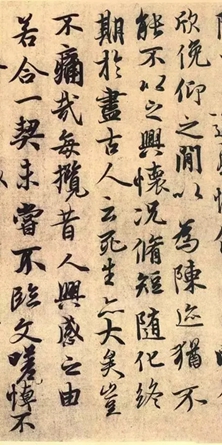 欣俛仰之間以為陳迹猶不
能不以之興懷況脩短隨化終
期於盡古人云死生亦大矣豈
不痛哉每攬昔人興感之由
若合一契未嘗不臨文嗟悼不